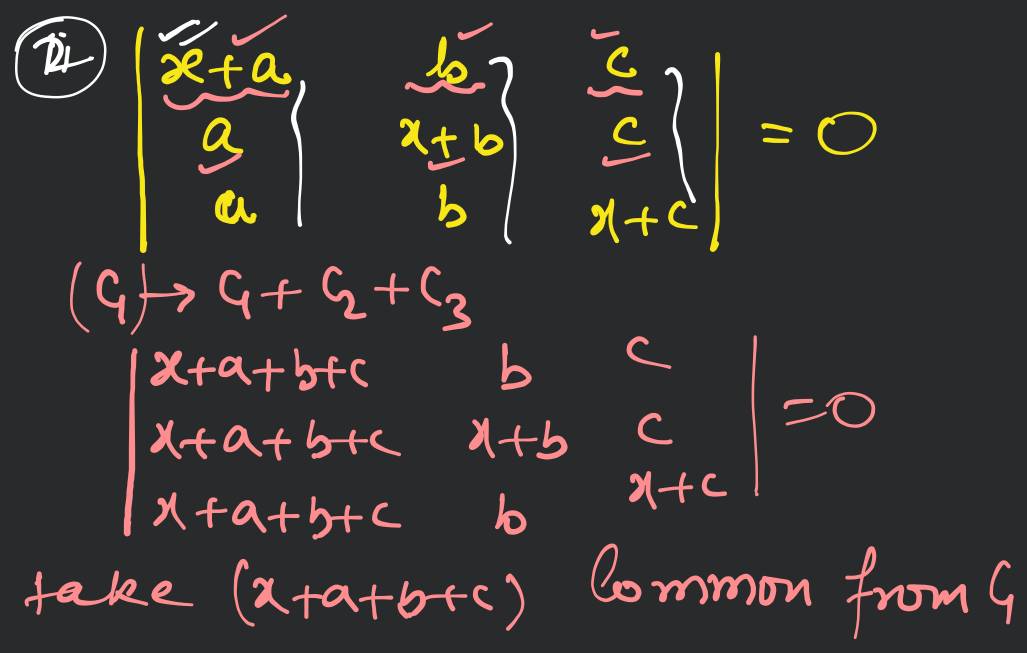 | x+a b c |
| a x+b c | = 0
| a b x+c |
(C₁) → C₁ + C₂ + C₃
| x+a+b+c b c |
| x+a+b+c x+b c | = 0
| x+a+b+c b x+c |
take (x+a+b+c) Common from C₁